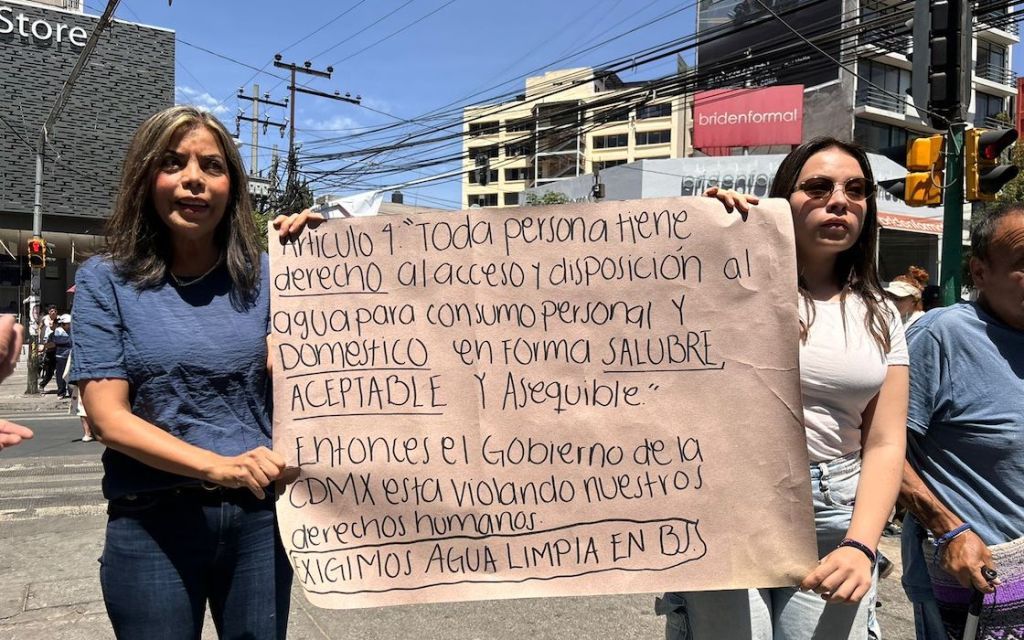 Store
bridenformal
bridenformal
Artículo 4. "Toda persona tiene
derecho al acceso y disposición al
agua para consumo personal y
Domestico en forma SALUBRE,
ACEPTABLE y Asequible."
Entonces el Gobierno de la
CDMX esta violando nuestros
derechos humanos.
EXIGIMOS AGUA LIMPIA EN BJ.